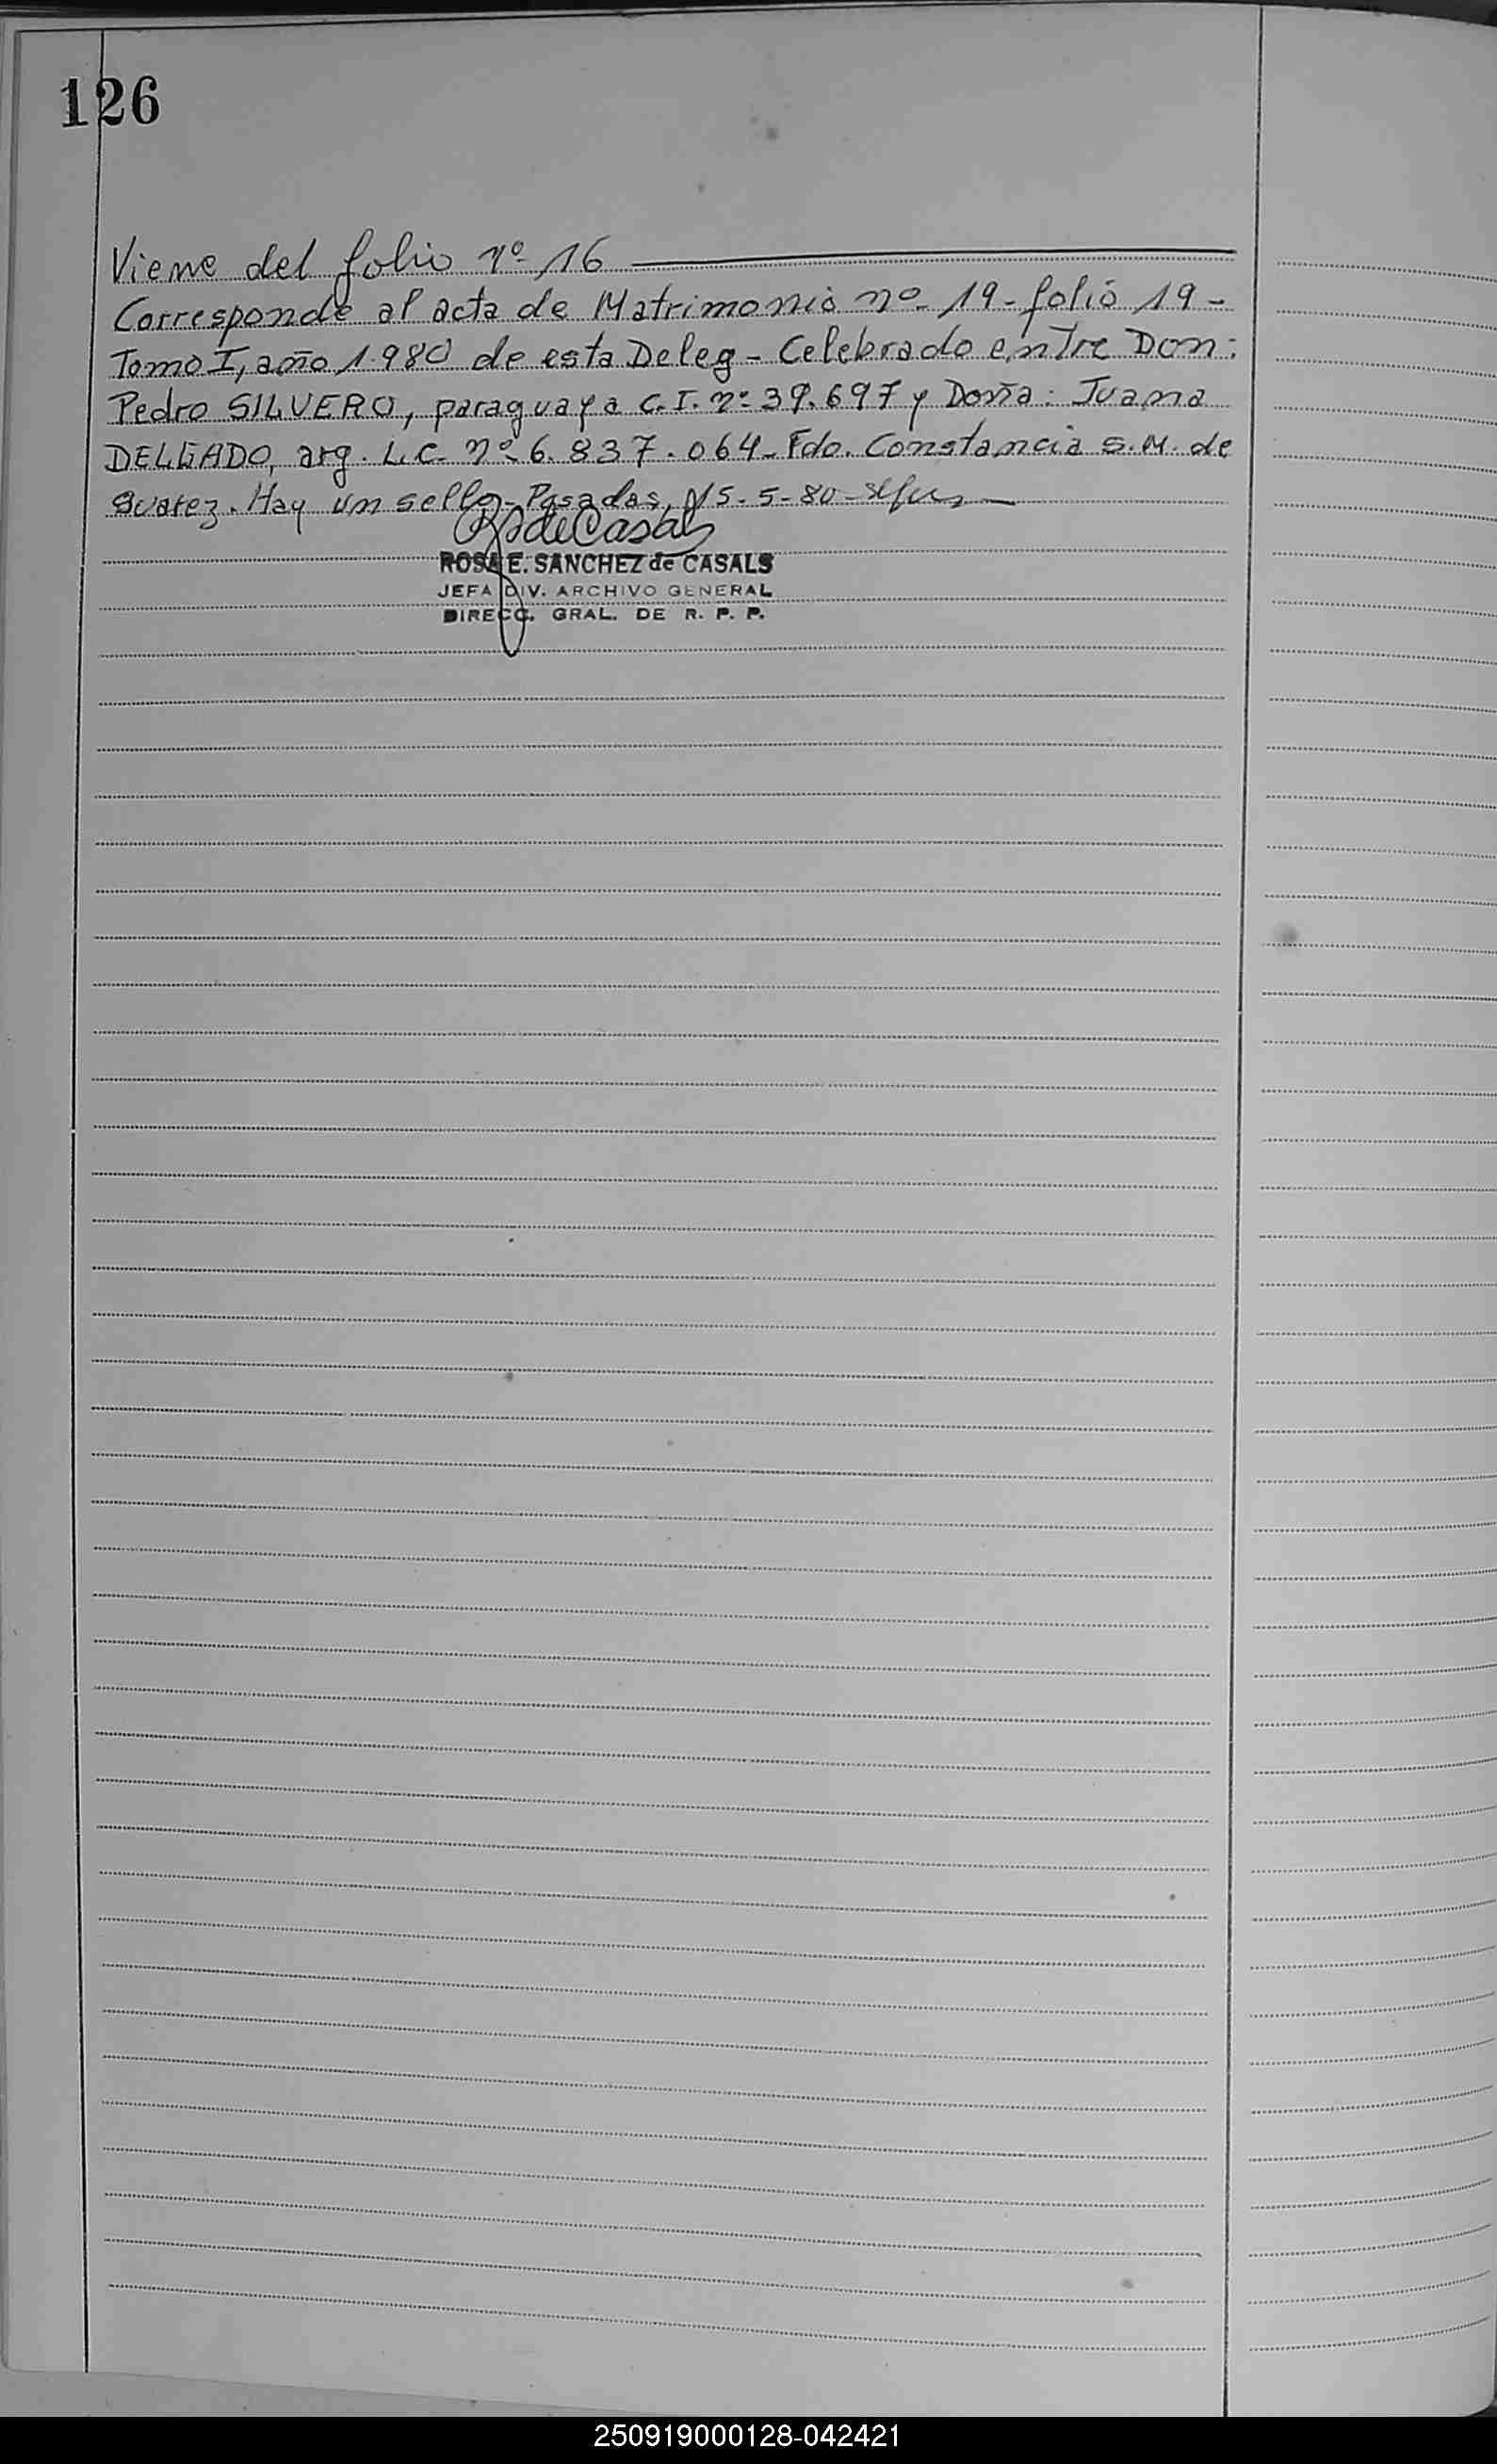 126
Viene del folio nº 16
Corresponde al acta de Matrimonio nº 19- folio 19-
Tomo I, año 1.980 de esta Deleg- Celebrado entre Don:
Pedro SILVERO, paraguaya C.I. nº 39.697 y Doña: Juana
DELGADO, arg. L.C. nº 6.837.064- Fdo. Constancia S.M. de
Suarez. Hay un sello- Posadas, 15-5-80-
R S de Casals
ROSA E. SANCHEZ de CASALS
JEFA DIV. ARCHIVO GENERAL
DIRECC. GRAL. DE R. P. P.
250919000128-042421